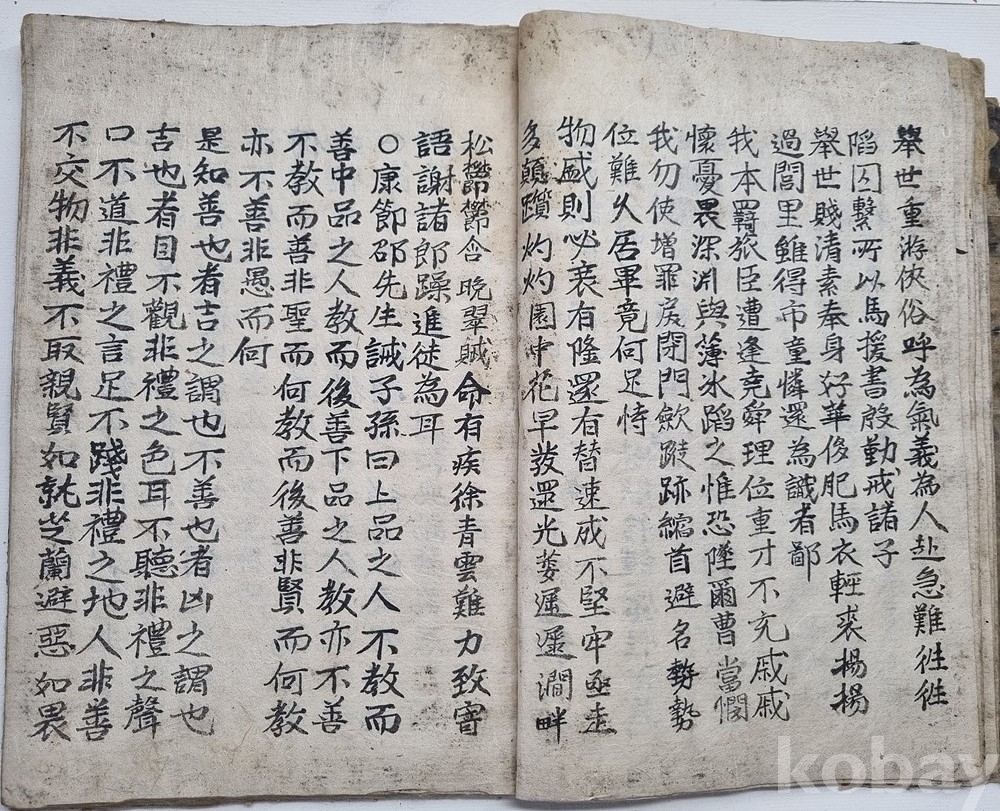 擧世重游俠俗呼為氣義為人赴急難徃徃
陷囚繫所以馬援書殷勤戒諸子
擧世賤清素奉身好華侈肥馬衣輕裘揚揚
過閭里雖得市童憐還為識者鄙
我本羇旅臣遭逢堯舜理位重才不充戚戚
懷憂畏深渊與薄氷蹈之惟恐墜爾曹當憫
我勿使增罪戾閉門歛蹤跡縮首避名勢勢
位難久居畢竟何足恃
物盛則必衰有隆還有替速成不堅牢亟走
多顚躓灼灼園中花早發還光萎遲遲澗畔
松欝欝含晩翠賦命有疾徐青雲難力致寄
語謝諸郎躁進徒為耳
○康節邵先生誡子孫曰上品之人不教而
善中品之人教而後善下品之人教亦不善
不教而善非聖而何教而後善非賢而何教
亦不善非愚而何
是知善也者吉之謂也不善也者凶之謂也
吉也者目不觀非禮之色耳不聽非禮之聲
口不道非禮之言足不踐非禮之地人非善
不交物非義不取親賢如就芝蘭避惡如畏
kobay